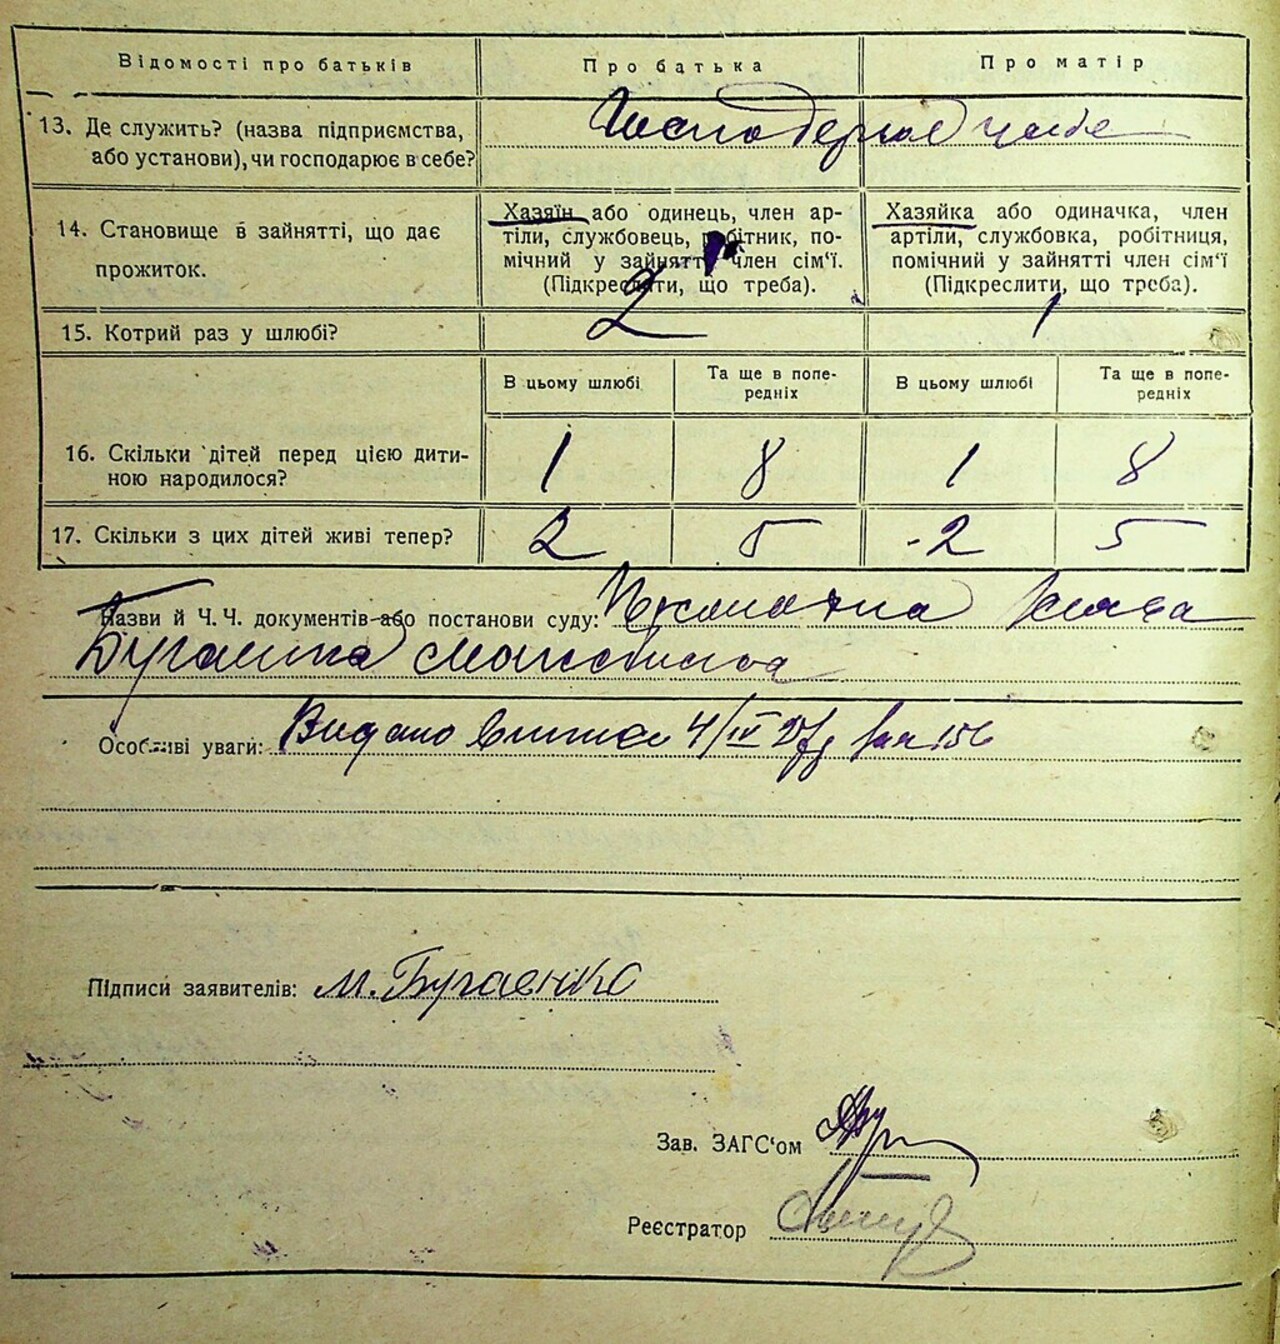 Відомості про батьків
Про батька
Про матір
13. Де служить? (назва підприємства,
або установи), чи господарює в себе?
14. Становище в зайнятті, що дає
прожиток.
Хазяїн або одинець, член ар-
тілі, службовець, робітник, по-
мічний у зайнятті член сім'ї.
(Підкреслити, що треба).
Хазяйка або одиначка, член
артілі, службовка, робітниця,
помічний у зайнятті член сім'ї
(Підкреслити, що треба).
15. Котрий раз у шлюбі?
2
1
В цьому шлюбі
Та ще в попе-
редніх
В цьому шлюбі
Та ще в попе-
редніх
16. Скільки дітей перед цією дити-
ною народилося?
1
8
1
8
17. Скільки з цих дітей живі тепер?
2
5
2
5
Назви й Ч. Ч. документів або постанови суду:
Особливі уваги: Видано 4/IV 27 156
Підписи заявителів: М. Бугаенко
Зав. ЗАГС'ом
Реєстратор